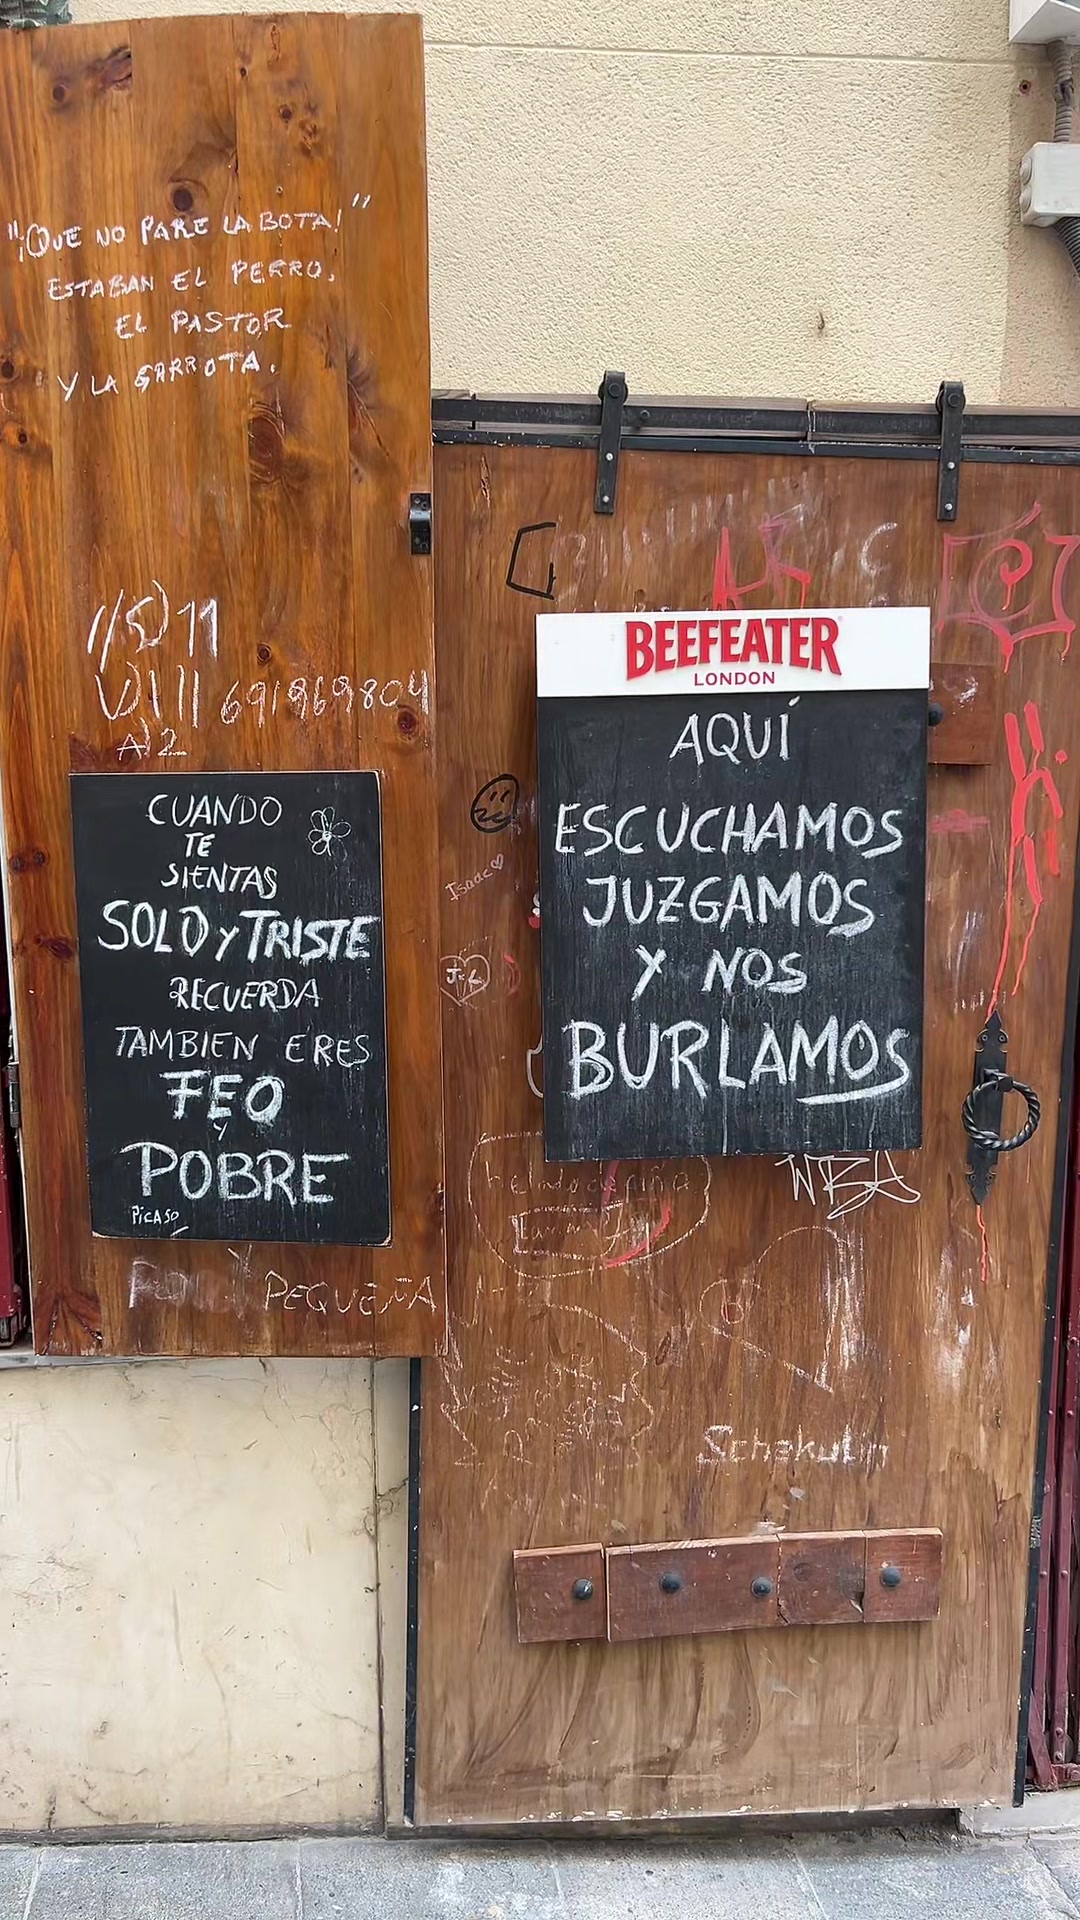 "¡QUE NO PARE LA BOTA!"
ESTABAN EL PERRO,
EL PASTOR
Y LA GARROTA.
691969804
A)2
CUANDO
TE
SIENTAS
SOLO y TRISTE
RECUERDA
TAMBIEN ERES
FEO
Y
POBRE
PiCASO
PEQUEÑA
BEEFEATER
LONDON
AQUÍ
ESCUCHAMOS
JUZGAMOS
Y NOS
BURLAMOS
Isaac